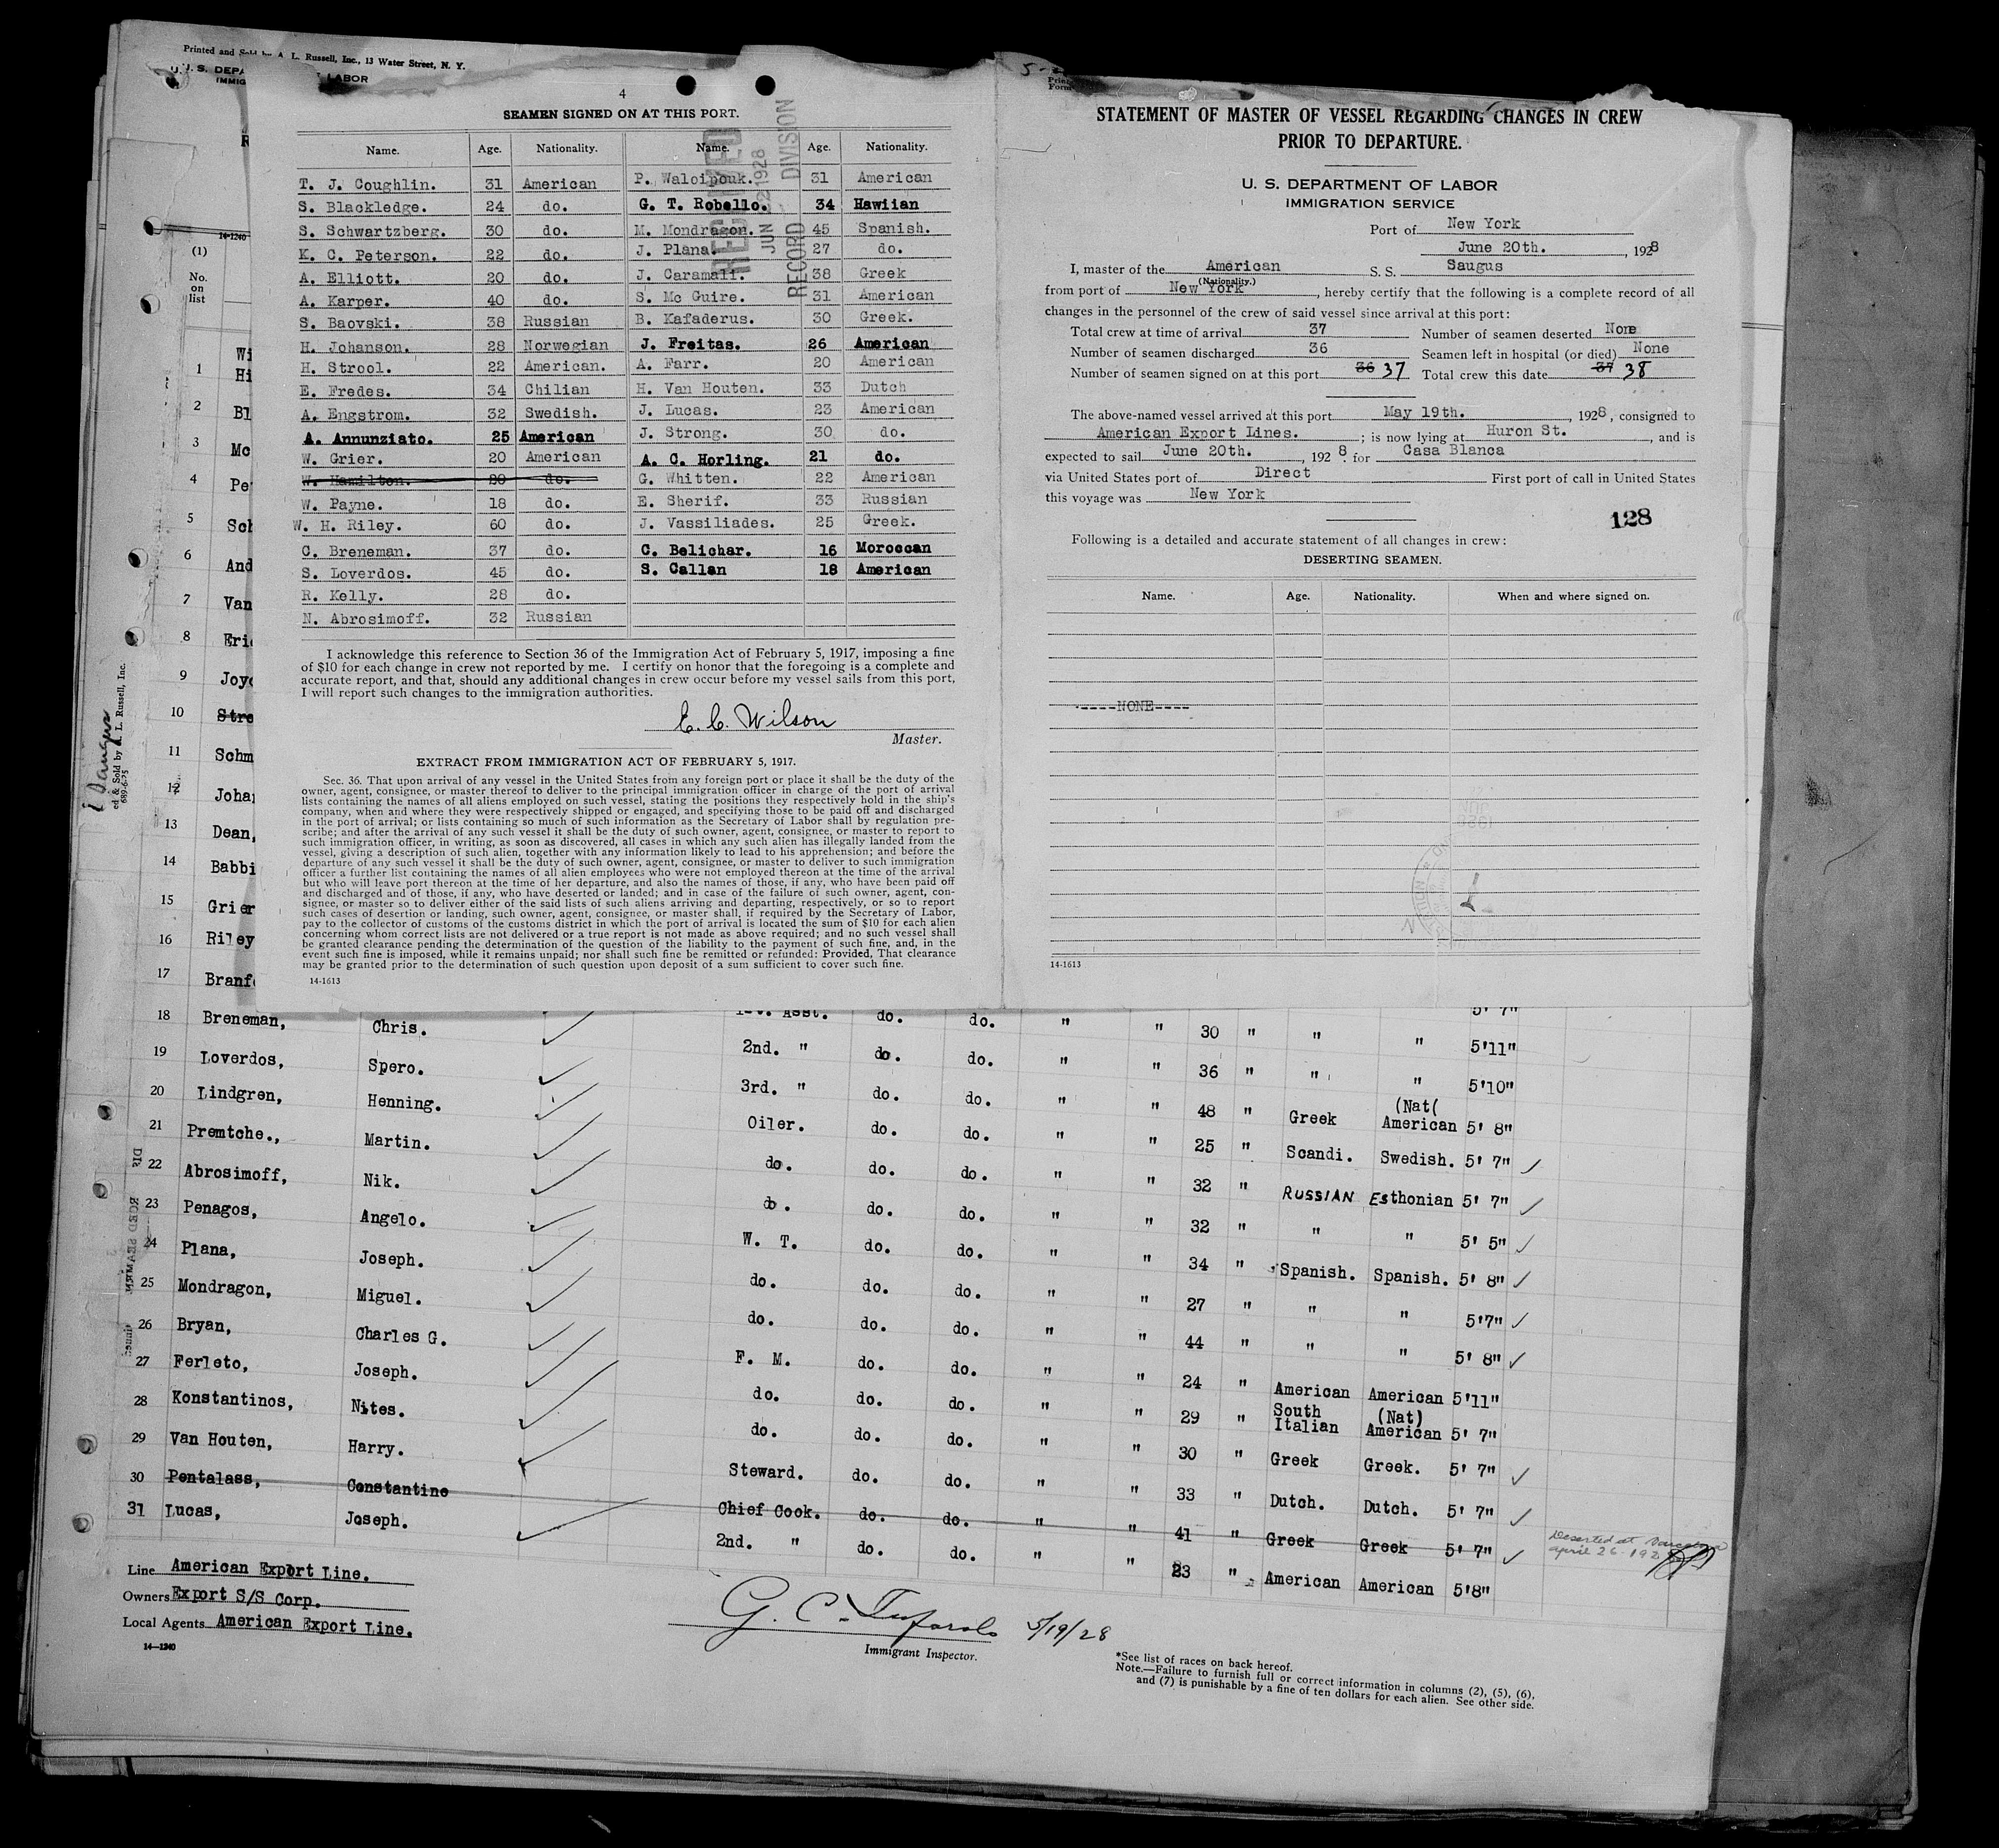 Printed and Sold by A. L. Russell, Inc., 13 Water Street, N. Y.
U. S. DEPA
LABOR
IMMIG
4
SEAMEN SIGNED ON AT THIS PORT.
Name. Age. Nationality. Name. Age. Nationality.
T. J. Coughlin. 31 American P. Waloipouk. 31 American
S. Blackledge. 24 do. G. T. Robello. 34 Hawiian
S. Schwartzberg. 30 do. M. Mondragon. 45 Spanish.
K. C. Peterson. 22 do. J. Plana. 27 do.
A. Elliott. 20 do. J. Caramali. 38 Greek
A. Karper. 40 do. S. Mc Guire. 31 American
S. Baovski. 38 Russian B. Kafaderus. 30 Greek.
H. Johanson. 28 Norwegian J. Freitas. 26 American
H. Strool. 22 American. A. Farr. 20 American
E. Fredes. 34 Chilian H. Van Houten. 33 Dutch
A. Engstrom. 32 Swedish. J. Lucas. 23 American
A. Annunziato. 25 American J. Strong. 30 do.
W. Grier. 20 American A. C. Horling. 21 do.
W. Hamilton. 20 do. G. Whitten. 22 American
W. Payne. 18 do. E. Sherif. 33 Russian
W. H. Riley. 60 do. J. Vassiliades. 25 Greek.
C. Breneman. 37 do. C. Belichar. 16 Moroccan
S. Loverdos. 45 do. S. Callan 18 American
R. Kelly. 28 do.
N. Abrosimoff. 32 Russian
RECEIVED
JUN 22 1928
RECORD DIVISION
I acknowledge this reference to Section 36 of the Immigration Act of February 5, 1917, imposing a fine
of $10 for each change in crew not reported by me. I certify on honor that the foregoing is a complete and
accurate report, and that, should any additional changes in crew occur before my vessel sails from this port,
I will report such changes to the immigration authorities.
E. C. Wilson
Master.
EXTRACT FROM IMMIGRATION ACT OF FEBRUARY 5, 1917.
Sec. 36. That upon arrival of any vessel in the United States from any foreign port or place it shall be the duty of the
owner, agent, consignee, or master thereof to deliver to the principal immigration officer in charge of the port of arrival
lists containing the names of all aliens employed on such vessel, stating the positions they respectively hold in the ship's
company, when and where they were respectively shipped or engaged, and specifying those to be paid off and discharged
in the port of arrival; or lists containing so much of such information as the Secretary of Labor shall by regulation pre-
scribe; and after the arrival of any such vessel it shall be the duty of such owner, agent, consignee, or master to report to
such immigration officer, in writing, as soon as discovered, all cases in which any such alien has illegally landed from the
vessel, giving a description of such alien, together with any information likely to lead to his apprehension; and before the
departure of any such vessel it shall be the duty of such owner, agent, consignee, or master to deliver to such immigration
officer a further list containing the names of all alien employees who were not employed thereon at the time of the arrival
but who will leave port thereon at the time of her departure, and also the names of those, if any, who have been paid off
and discharged and of those, if any, who have deserted or landed; and in case of the failure of such owner, agent, con-
signee, or master so to deliver either of the said lists of such aliens arriving and departing, respectively, or so to report
such cases of desertion or landing, such owner, agent, consignee, or master shall, if required by the Secretary of Labor,
pay to the collector of customs of the customs district in which the port of arrival is located the sum of $10 for each alien
concerning whom correct lists are not delivered or a true report is not made as above required; and no such vessel shall
be granted clearance pending the determination of the question of the liability to the payment of such fine, and, in the
event such fine is imposed, while it remains unpaid; nor shall such fine be remitted or refunded: Provided, That clearance
may be granted prior to the determination of such question upon deposit of a sum sufficient to cover such fine.
14-1613
STATEMENT OF MASTER OF VESSEL REGARDING CHANGES IN CREW
PRIOR TO DEPARTURE.
U. S. DEPARTMENT OF LABOR
IMMIGRATION SERVICE
Port of New York
June 20th. , 1928
I, master of the American S. S. Saugus
(Nationality.)
from port of New York , hereby certify that the following is a complete record of all
changes in the personnel of the crew of said vessel since arrival at this port:
Total crew at time of arrival 37 Number of seamen deserted None
Number of seamen discharged 36 Seamen left in hospital (or died) None
Number of seamen signed on at this port 36 37 Total crew this date 37 38
The above-named vessel arrived at this port May 19th. , 1928, consigned to
American Export Lines. ; is now lying at Huron St. , and is
expected to sail June 20th. , 192 8. for Casa Blanca
via United States port of Direct First port of call in United States
this voyage was New York
128
Following is a detailed and accurate statement of all changes in crew:
DESERTING SEAMEN.
Name. Age. Nationality. When and where signed on.
----NONE----
14-1613
14-1240
(1)
No. on list
Wi
1 Hi
2 Bl
3 Mc
4 Pe
5 Sch
6 And
7 Van
8 Eric
9 Joyc
10 Stro
11 Schm
12 Johan
13 Dean,
14 Babbi
15 Grier
16 Riley
17 Branf 5' 7"
18 Breneman, Chris. 1st. Asst. do. do. " " 30 " " " 5'11"
19 Loverdos, Spero. 2nd. " do. do. " " 36 " " " 5'10"
20 Lindgren, Henning. 3rd. " do. do. " " 48 " Greek (Nat( American 5' 8"
21 Premtche., Martin. Oiler. do. do. " " 25 " Scandi. Swedish. 5' 7"
22 Abrosimoff, Nik. do. do. do. " " 32 " RUSSIAN Esthonian 5' 7"
23 Penagos, Angelo. do. do. do. " " 32 " " " 5' 5"
24 Plana, Joseph. W. T. do. do. " " 34 " Spanish. Spanish. 5' 8"
25 Mondragon, Miguel. do. do. do. " " 27 " " " 5'7"
26 Bryan, Charles G. do. do. do. " " 44 " " " 5' 8"
27 Ferleto, Joseph. F. M. do. do. " " 24 " American American 5'11"
28 Konstantinos, Nites. do. do. do. " " 29 " South Italian (Nat) American 5' 7"
29 Van Houten, Harry. do. do. do. " " 30 " Greek Greek. 5' 7"
30 Pentalass, Constantine Steward. do. do. " " 33 " Dutch. Dutch. 5' 7"
31 Lucas, Joseph. Chief Cook. do. do. " " 41 " Greek Greek 5' 7" Deserted at Barcelona april 26-192
2nd. " do. do. " " 23 " American American 5'8"
Line American Export Line.
Owners Export S/S Corp.
Local Agents American Export Line.
14-1240
5/19/28
Immigrant Inspector.
*See list of races on back hereof.
Note.—Failure to furnish full or correct information in columns (2), (5), (6),
and (7) is punishable by a fine of ten dollars for each alien. See other side.
ed & Sold by A. L. Russell, Inc.
689-6-75